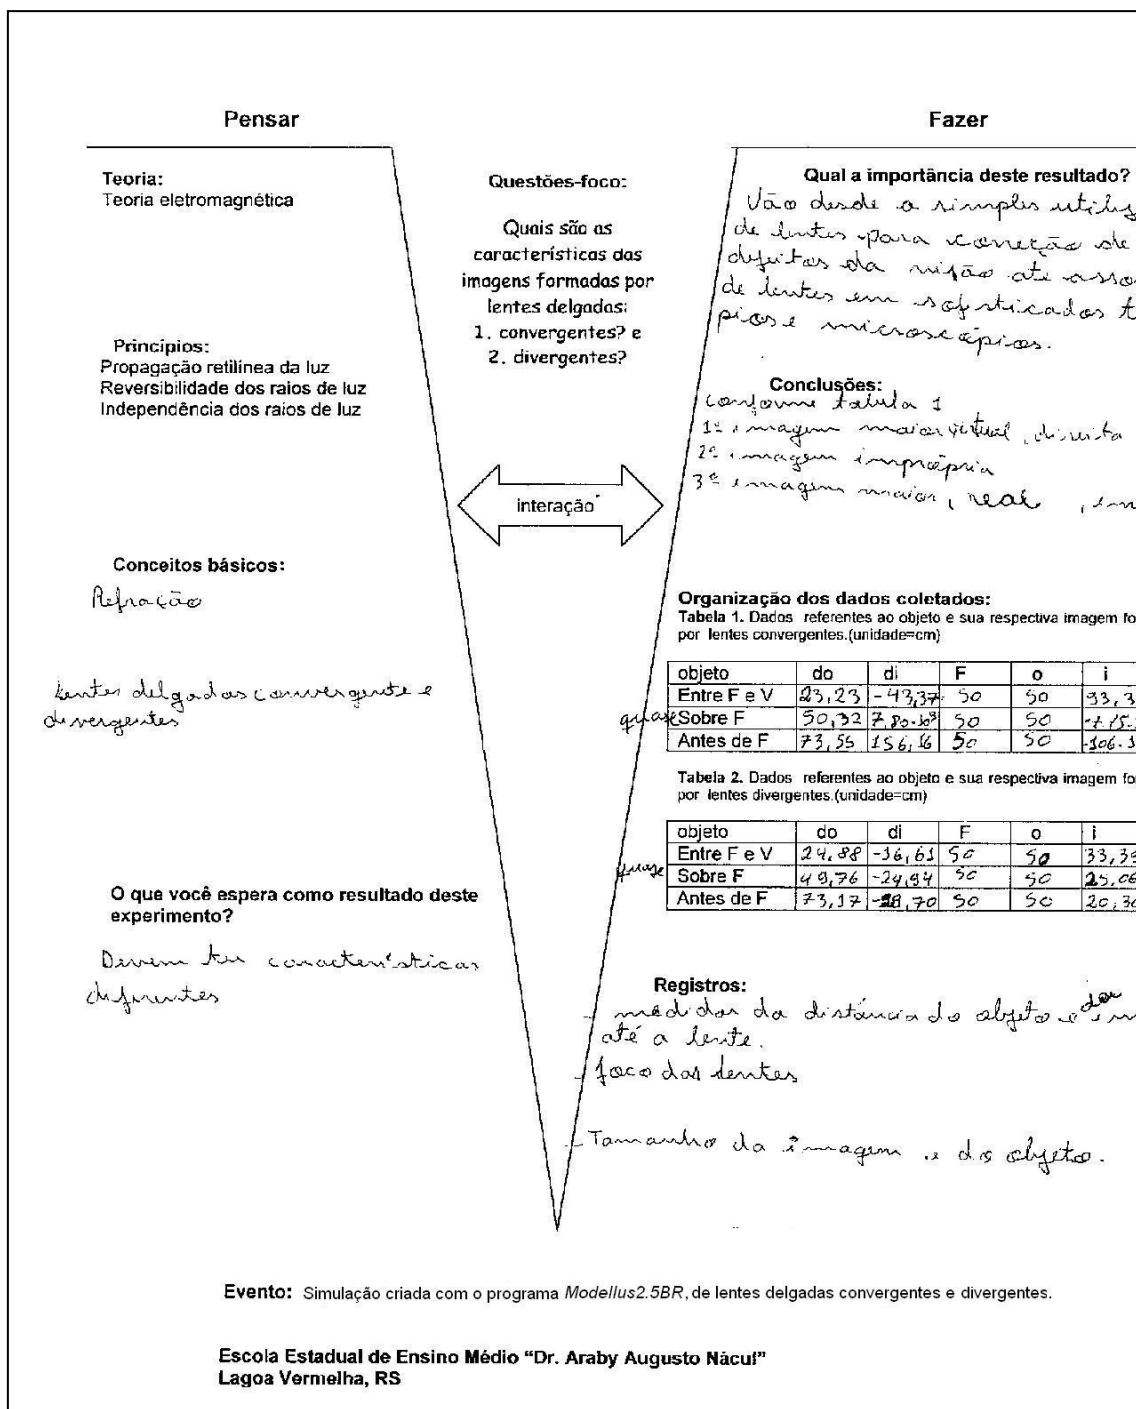 Pensar
Teoria:
Teoria eletromagnética
Princípios:
Propagação retilínea da luz
Reversibilidade dos raios de luz
Independência dos raios de luz
Conceitos básicos:
Refração
Lentes delgadas convergente e
divergentes
O que você espera como resultado deste
experimento?
Devem ter características
diferentes
Questões-foco:
Quais são as
características das
imagens formadas por
lentes delgadas:
1. convergentes? e
2. divergentes?
interação
Fazer
Qual a importância deste resultado?
Vão desde a simples utiliz
de lentes para correção de
defeitos da visão até asso
de lentes em sofisticados t
pios e microscópios.
Conclusões:
conforme tabela 1
1ª imagem maior, virtual, direita
2ª imagem imprópria
3ª imagem maior, real, in
Organização dos dados coletados:
Tabela 1. Dados referentes ao objeto e sua respectiva imagem fo
por lentes convergentes.(unidade=cm)
objeto do di F o i
Entre F e V 23,23 -43,37 50 50 93,3
quase Sobre F 50,32 7,80.10³ 50 50
Antes de F 73,55 156,16 50 50 -106.1
Tabela 2. Dados referentes ao objeto e sua respectiva imagem fo
por lentes divergentes.(unidade=cm)
objeto do di F o i
Entre F e V 24,88 -16,61 50 50 33,39
quase Sobre F 49,76 -24,94 50 50 25,06
Antes de F 73,17 -28,70 50 50 20,30
Registros:
- medidas da distância do objeto e da im
até a lente.
- foco das lentes
- Tamanho da imagem e do objeto.
Evento: Simulação criada com o programa Modellus2.5BR, de lentes delgadas convergentes e divergentes.
Escola Estadual de Ensino Médio “Dr. Araby Augusto Nácul”
Lagoa Vermelha, RS